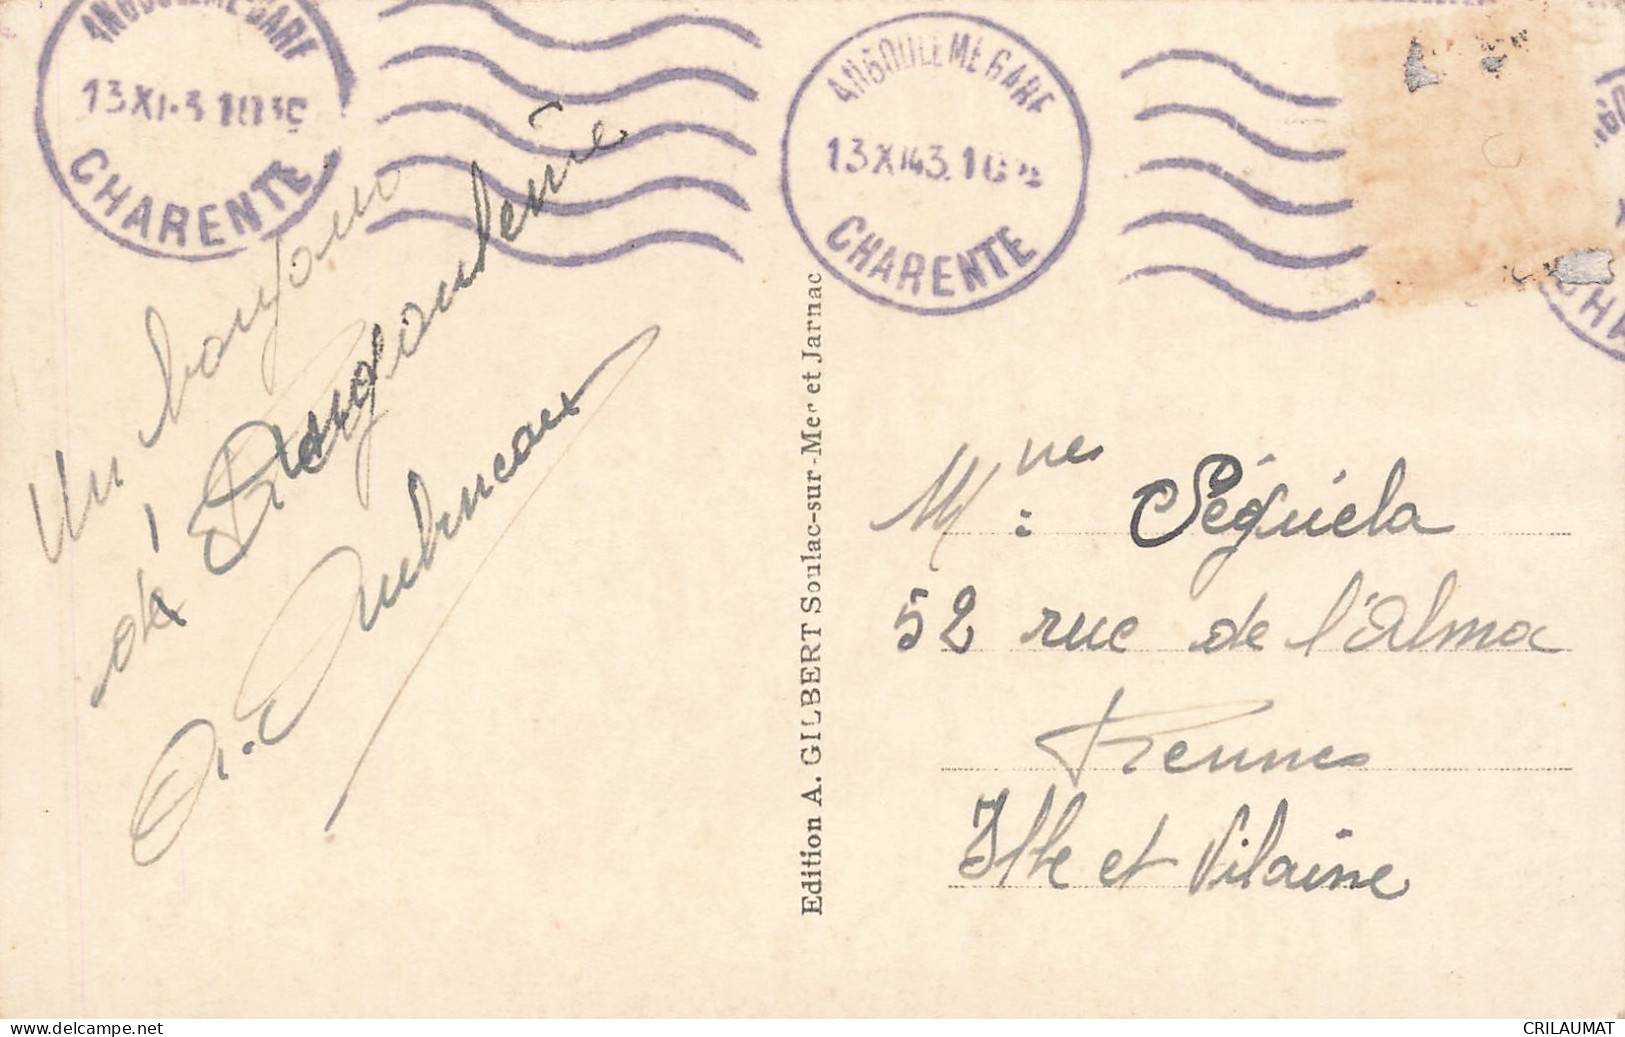 ANGOULEME GARE
13 XI 43 10
CHARENTE
ANGOULEME GARE
13 XI 43. 10
CHARENTE
CHA
Un bonjour
de
Angoulême
Edition A. GILBERT Soulac-sur-Mer et Jarnac
Mmes : Séguiela
52 rue de l'Alma
Rennes
Ille et Vilaine
CRILAUMAT